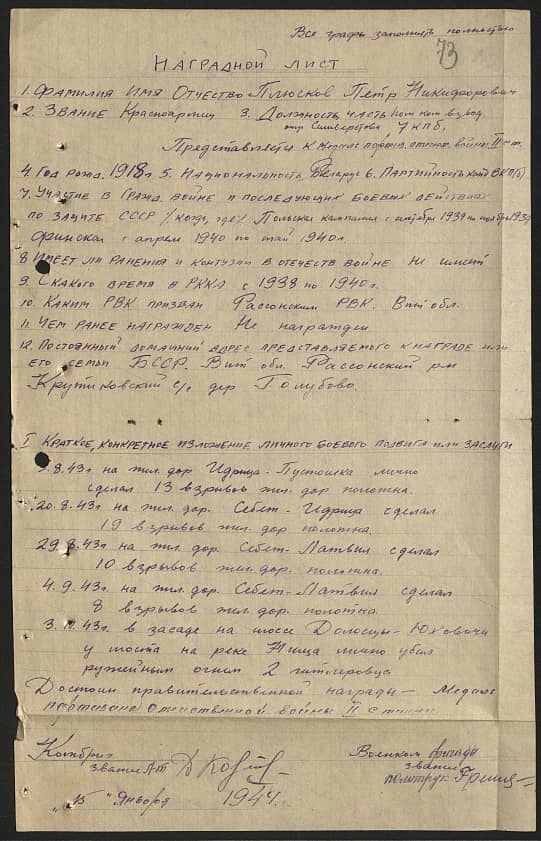 Все графы заполнять полностью
73
НАГРАДНОЙ ЛИСТ
1. ФАМИЛИЯ ИМЯ ОТЧЕСТВО Плюсков Петр Никифорович
2. ЗВАНИЕ Красноармеец 3. ДОЛЖНОСТЬ, ЧАСТЬ пом ком взвод.
отр Селиверстова 7 КПБ.
Представляется к медале партизан. отечест. войны II ст.
4. ГОД РОЖД. 1918 г. 5. НАЦИОНАЛЬНОСТЬ Беларус 6. ПАРТИЙНОСТЬ канд ВКП(б)
7. УЧАСТИЕ В ГРАЖД. ВОЙНЕ И ПОСЛЕДУЮЩИХ БОЕВЫХ ДЕЙСТВИЯХ
ПО ЗАЩИТЕ СССР /КОГДА, ГДЕ/ Польская кампания с октября 1939 по ноябрь 1939
Финская с апреля 1940 по май 1940 г.
8 ИМЕЕТ ЛИ РАНЕНИЯ И КОНТУЗИИ В ОТЕЧЕСТВ ВОЙНЕ Не имеет
9. С КАКОГО ВРЕМЯ В РККА с 1938 по 1940 г.
10. КАКИМ РВК ПРИЗВАН Рассонским РВК. Вит обл.
11. ЧЕМ РАНЕЕ НАГРАЖДЕН Не награжден
12. ПОСТОЯННЫЙ ДОМАШНИЙ АДРЕС ПРЕДСТАВЛЯЕМОГО К НАГРАДЕ ИЛИ
ЕГО СЕМЬИ БССР. Вит обл. Рассонский р-н
Крутиковский с/с дер Голубово.
I КРАТКОЕ, КОНКРЕТНОЕ ИЗЛОЖЕНИЕ ЛИЧНОГО БОЕВОГО ПОДВИГА ИЛИ ЗАСЛУГИ
.8.43 г на жел. дор Идрица - Пустошка лично
сделал 13 взрывов жел. дор полотна.
20.8.43 г. на жел. дор. Себеж - Идрица сделал
19 взрывов жел. дор полотна.
29.8.43 г. на жел. дор. Себеж - Латвия сделал
10 взрывов жел. дор. полотна.
4.9.43 г. на жел. дор. Себеж - Латвия сделал
8 взрывов жел. дор. полотна.
3. .43 г. в засаде на шоссе Долосцы - Юховичи
у моста на реке Нища лично убил
ружейным огнем 2 гитлеровца
Достоин правительственной награды - Медаль
партизана отечественной войны II степени
Комбриг
звание
Военком бригады
звание
политрук
„15" Января 1944 г.